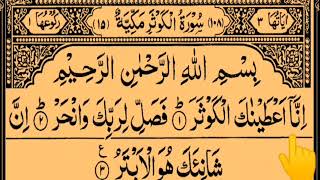 اٰیَاتُهَا ۳ (۱۰۸) سُوْرَةُ الْكَوْثَرِ مَكِّیَّةٌ (۱۵) رُكُوْعُهَا ۱
بِسْمِ اللّٰهِ الرَّحْمٰنِ الرَّحِیْمِ
اِنَّاۤ اَعْطَیْنٰكَ الْكَوْثَرَ ؕ﴿۱﴾ فَصَلِّ لِرَبِّكَ وَ انْحَرْ ؕ﴿۲﴾ اِنَّ
شَانِئَكَ هُوَ الْاَبْتَرُ ﴿۳﴾ ع